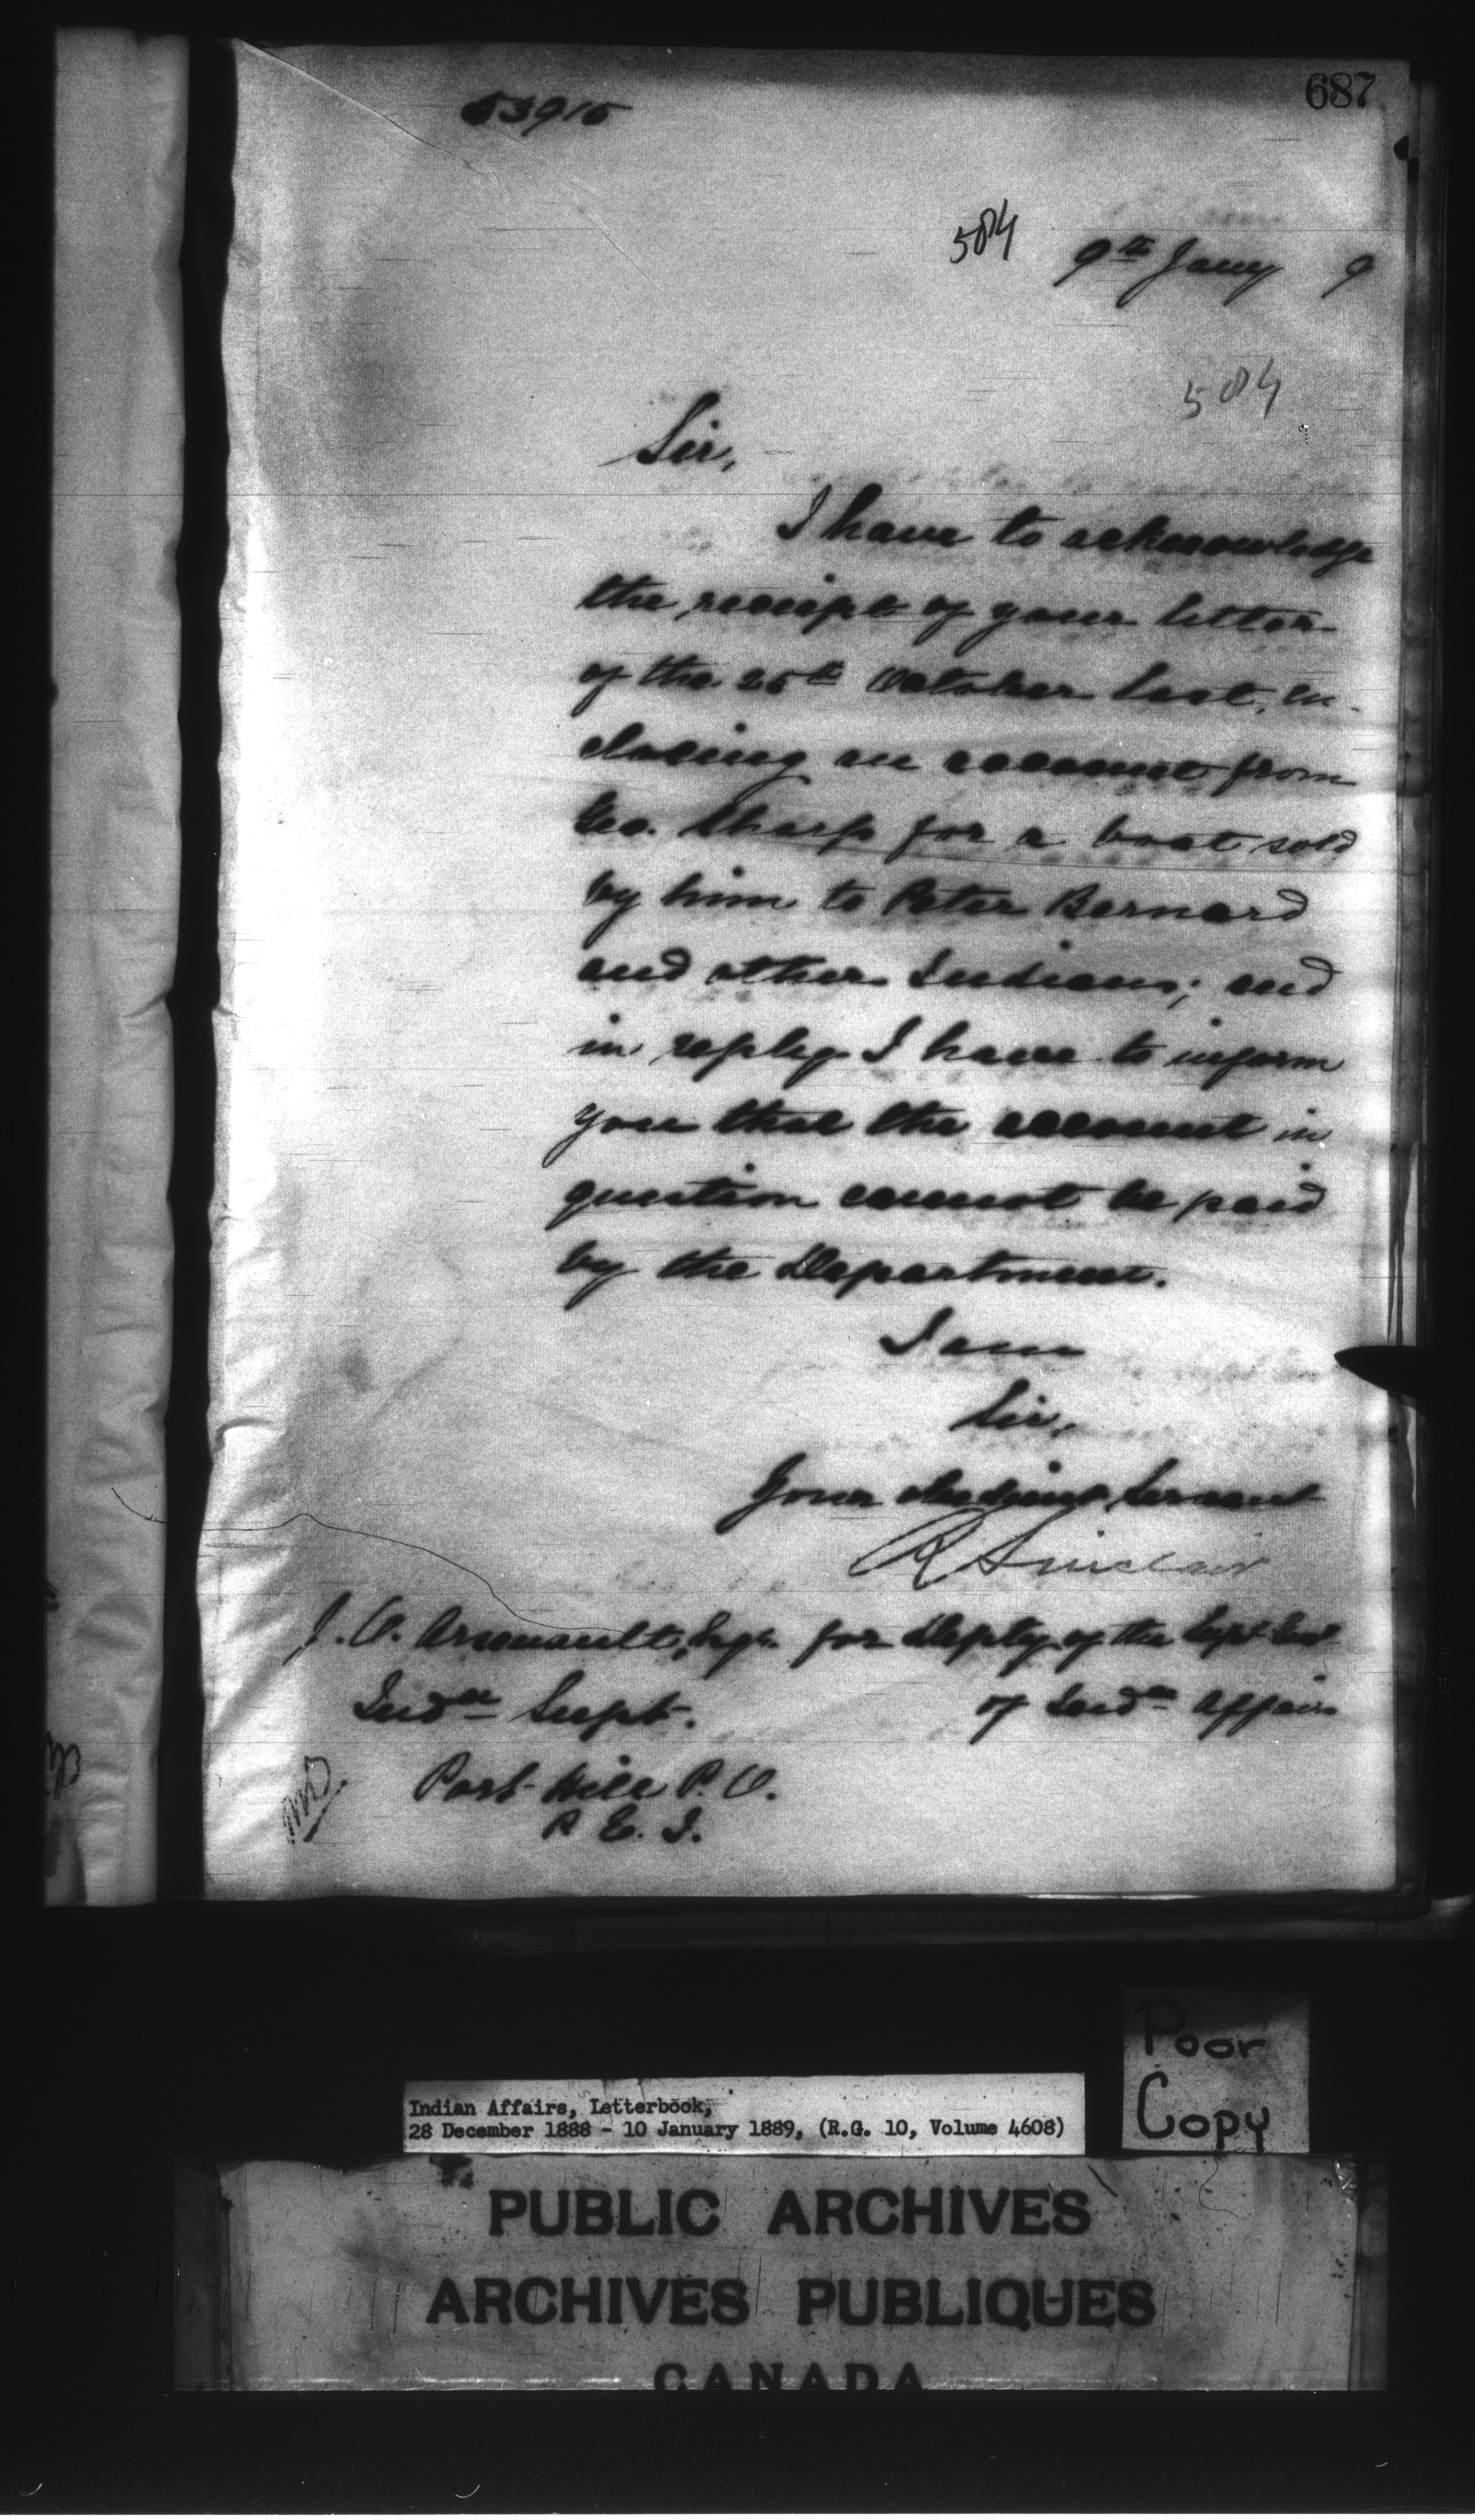 687
53915
584
9th Jany 9
584
Sir,
I have to acknowledge
the receipt of your letter
of the 25th October last, en-
closing an account from
Geo. Sharp for a boat sold
by him to Peter Bernard
and other Indians; and
in reply I have to inform
you that the account in
question cannot be paid
by the Department.
I am
Sir,
Your obedient Servant
R Sinclair
J. O. Arsenault, Esqr. for Depty of the Supt Genl
Indn Supt. of Indn Affairs
Port Hill P. O.
P E. I.
Poor
Copy
Indian Affairs, Letterbook,
28 December 1888 - 10 January 1889, (R.G. 10, Volume 4608)
PUBLIC ARCHIVES
ARCHIVES PUBLIQUES
CANADA